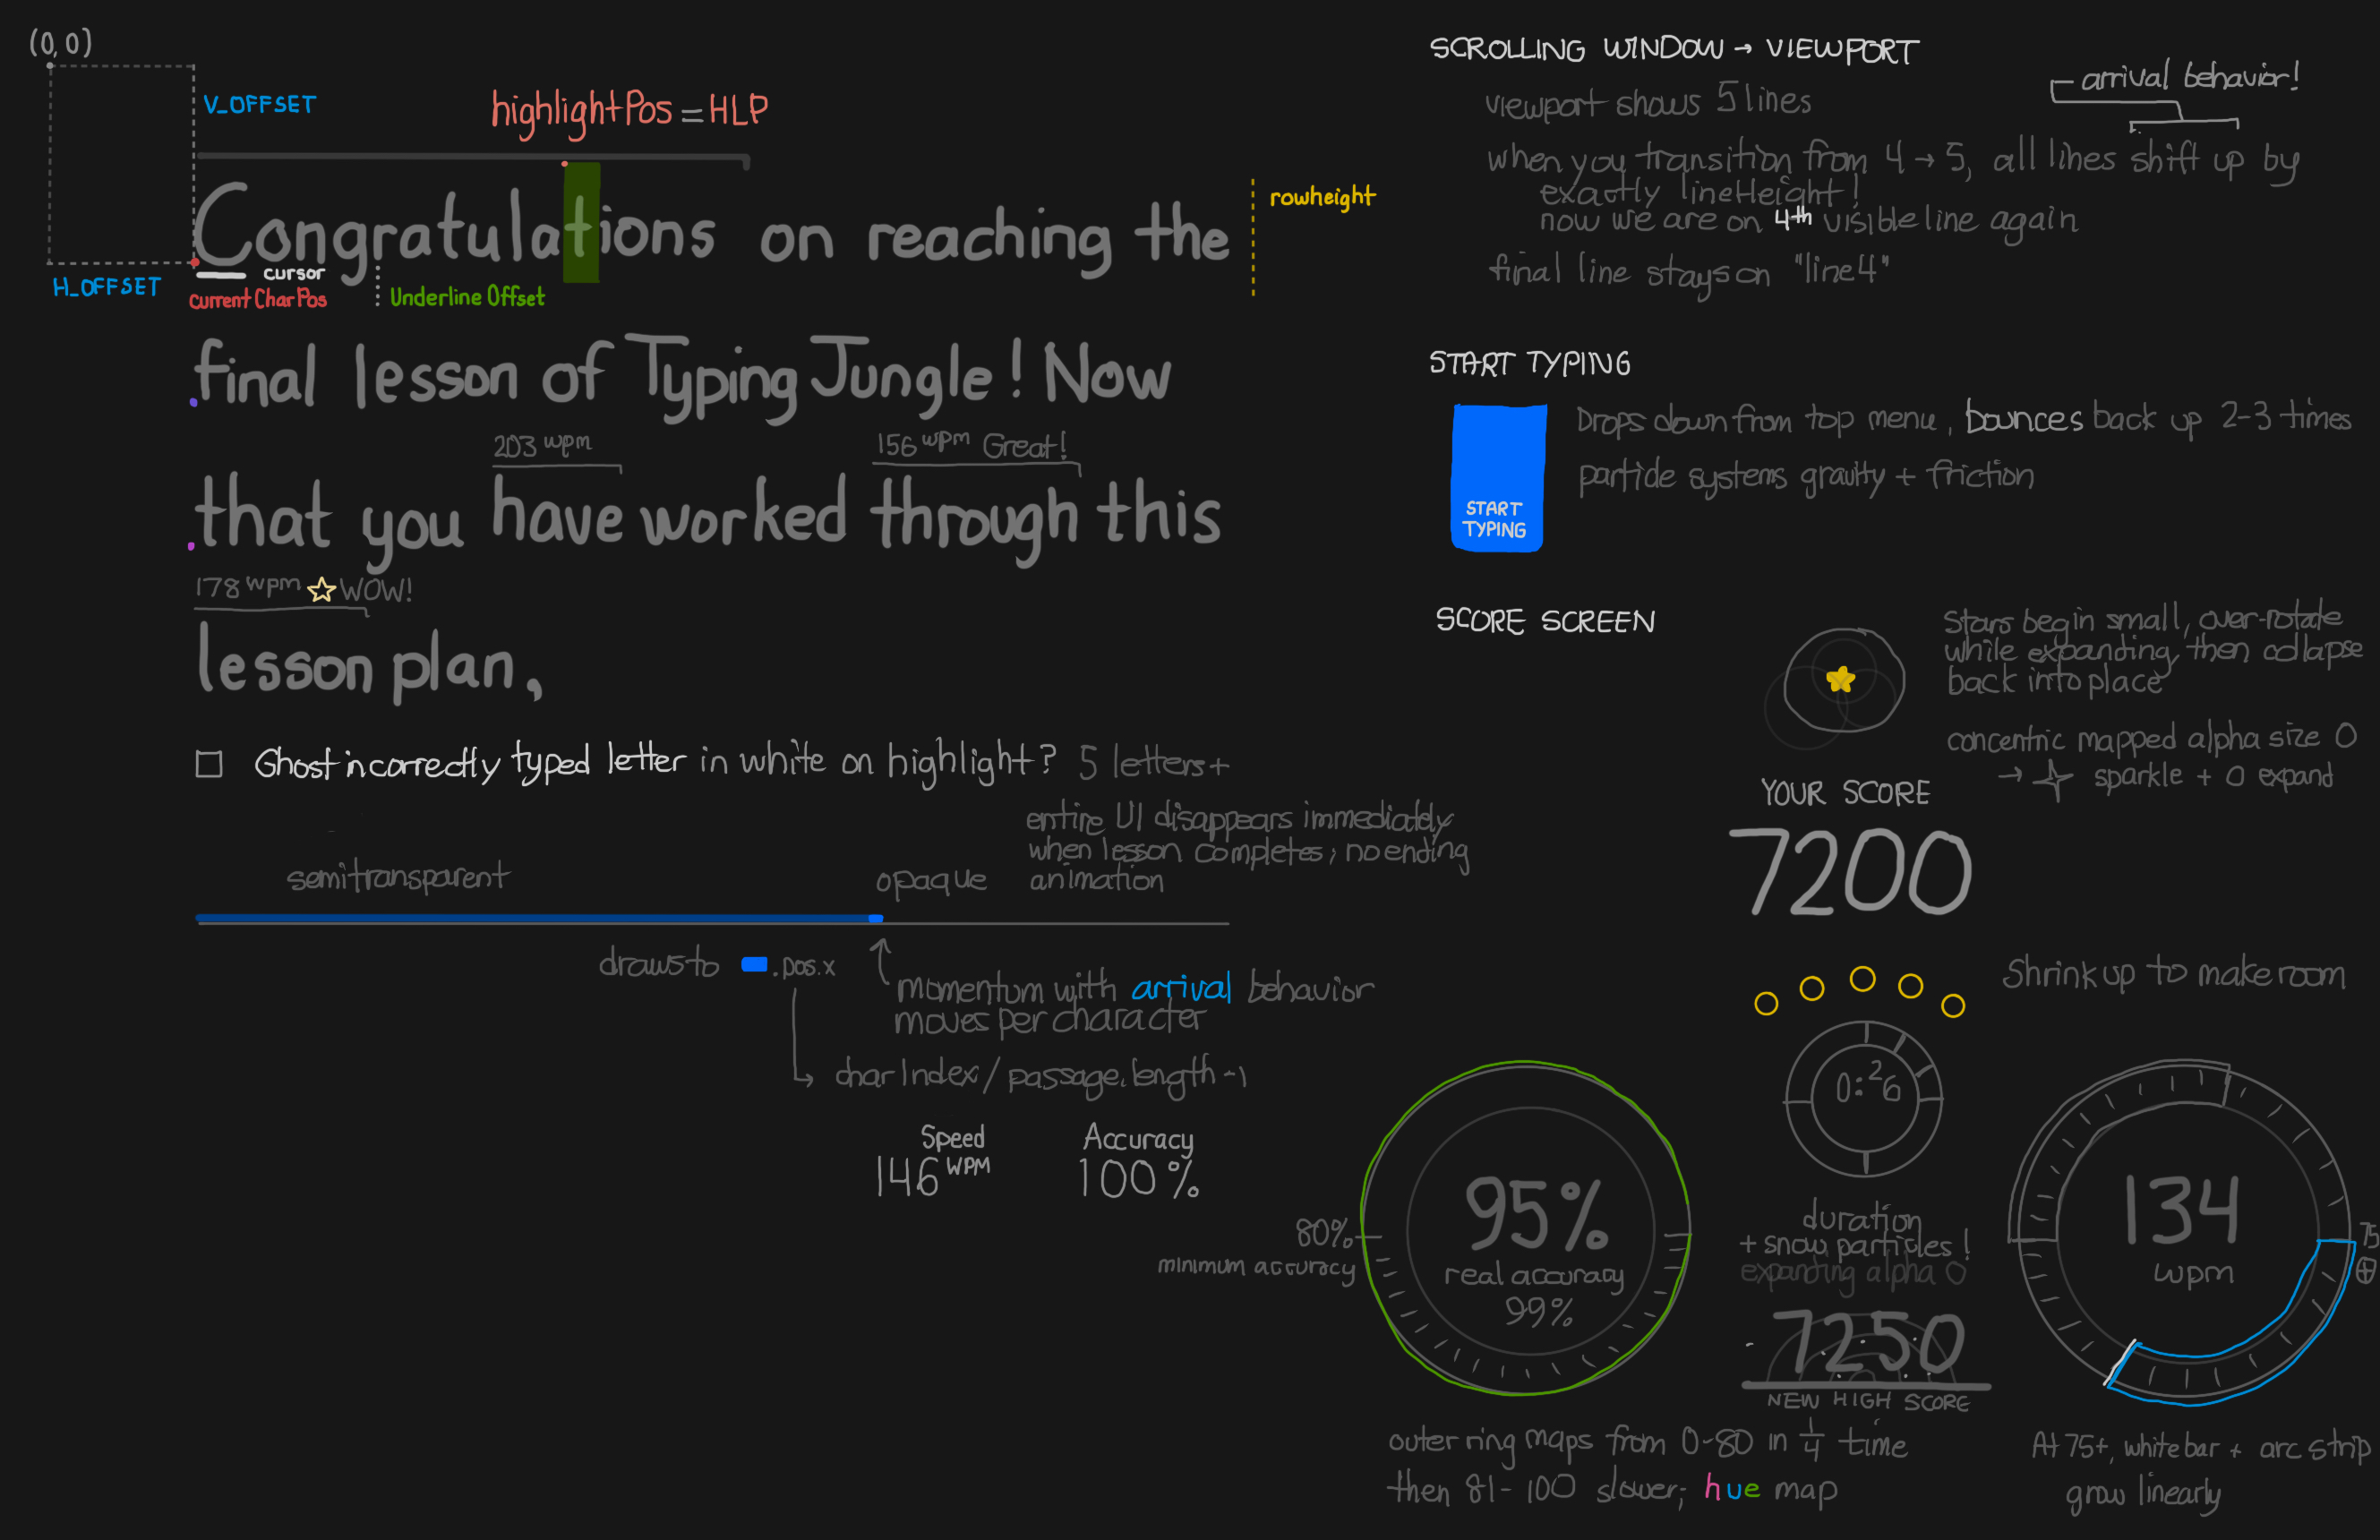 (0,0)
V_OFFSET
highlightPos = HLP
Congratulations on reaching the
rowheight
H_OFFSET
cursor
currentCharPos
Underline Offset
final lesson of Typing Jungle! Now
203 wpm
156 wpm Great!
that you have worked through this
178 wpm ☆ WOW!
lesson plan,
Ghost incorrectly typed letter in white on highlight? 5 letters+
semitransparent
opaque
entire UI disappears immediately
when lesson completes; no ending
animation
draws to .pos.x
momentum with arrival behavior
moves per character
charIndex / passage.length -1
Speed
146 WPM
Accuracy
100%
SCROLLING WINDOW → VIEWPORT
arrival behavior!
viewport shows 5 lines
when you transition from 4 → 5, all lines shift up by
exactly lineHeight!
now we are on 4th visible line again
final line stays on "line 4"
START TYPING
START
TYPING
Drops down from top menu, bounces back up 2-3 times
particle systems gravity + friction
SCORE SCREEN
stars begin small, over-rotate
while expanding, then collapse
back into place
concentric mapped alpha size 0
→ sparkle + 0 expand
YOUR SCORE
7200
Shrink up to make room
0:26
80%
minimum accuracy
95%
real accuracy
99%
duration
+ snow particles!
expanding alpha 0
7250
NEW HIGH SCORE
134
wpm
75
outer ring maps from 0-80 in 1/4 time
then 81-100 slower; hue map
At 75+, white bar + arc strip
grow linearly